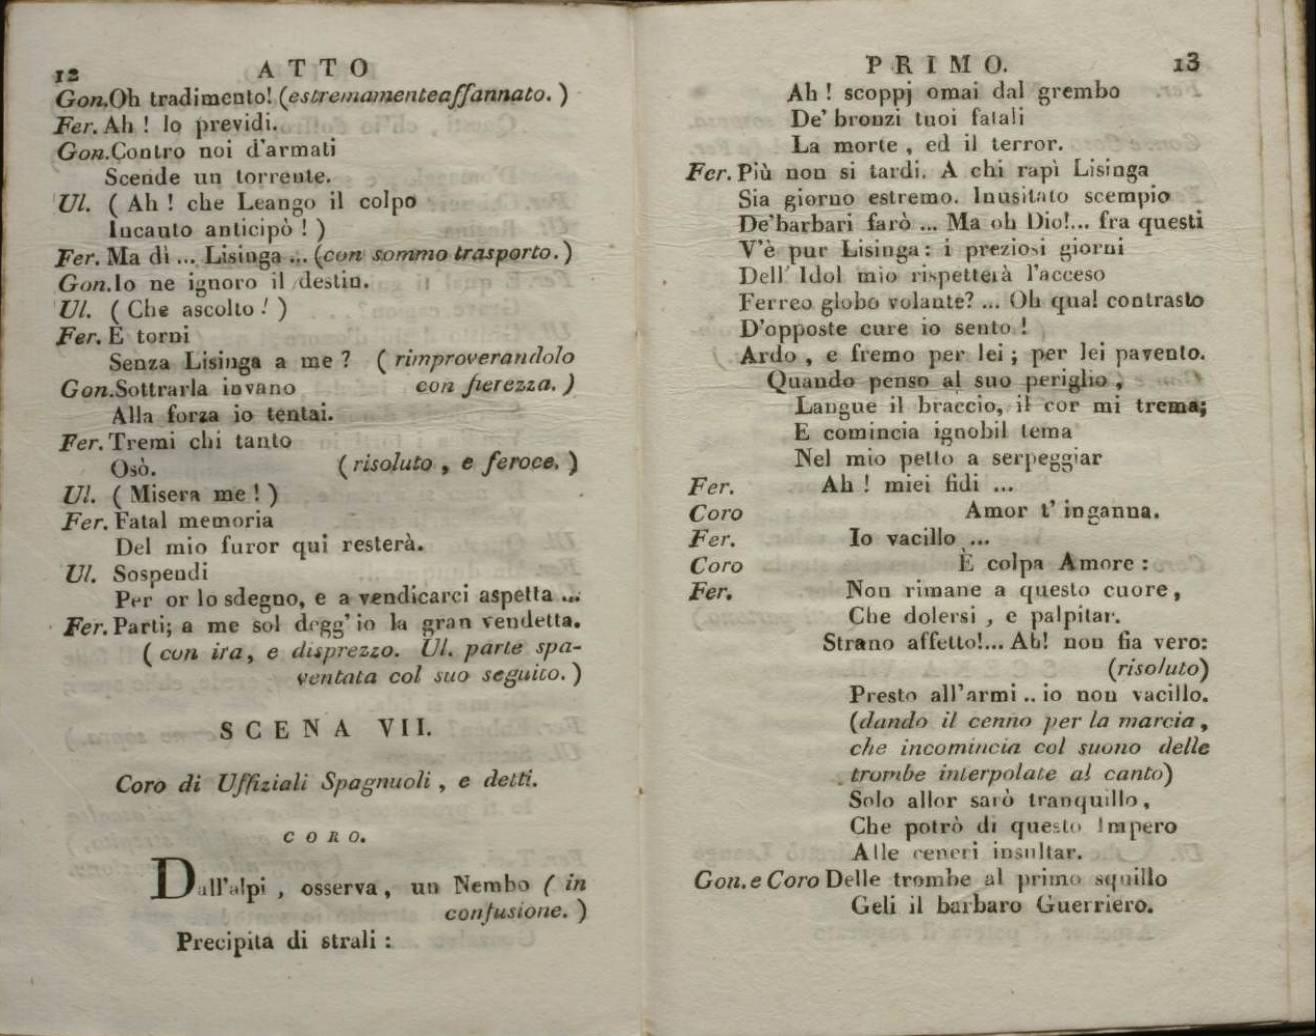 12 ATTO
Gon.Oh tradimento! (estremamenteaffannato. )
Fer. Ah ! lo previdi.
Gon.Contro noi d'armati
Scende un torrente.
Ul. ( Ah ! che Leango il colpo
Incauto anticipò ! )
Fer. Ma dì ... Lisinga ... (con sommo trasporto. )
Gon.Io ne ignoro il destin.
Ul. ( Che ascolto ! )
Fer. E torni
Senza Lisinga a me ? ( rimproverandolo
Gon.Sottrarla invano con fierezza. )
Alla forza io tentai.
Fer. Tremi chi tanto
Osò. ( risoluto , e feroce. )
Ul. ( Misera me ! )
Fer. Fatal memoria
Del mio furor qui resterà.
Ul. Sospendi
Per or lo sdegno, e a vendicarci aspetta ...
Fer. Parti; a me sol degg' io la gran vendetta.
( con ira, e disprezzo. Ul. parte spa-
ventata col suo seguito. )
SCENA VII.
Coro di Uffiziali Spagnuoli , e detti.
CORO.
Dall'alpi , osserva, un Nembo ( in
confusione. )
Precipita di strali :
PRIMO. 13
Ah ! scoppj omai dal grembo
De' bronzi tuoi fatali
La morte , ed il terror.
Fer. Più non si tardi. A chi rapì Lisinga
Sia giorno estremo. Inusitato scempio
De'barbari farò ... Ma oh Dio!... fra questi
V'è pur Lisinga : i preziosi giorni
Dell' Idol mio rispetterà l'acceso
Ferreo globo volante? ... Oh qual contrasto
D'opposte cure io sento !
Ardo , e fremo per lei ; per lei pavento.
Quando penso al suo periglio ,
Langue il braccio, il cor mi trema;
E comincia ignobil tema
Nel mio petto a serpeggiar
Fer. Ah ! miei fidi ...
Coro Amor t' inganna.
Fer. Io vacillo ...
Coro È colpa Amore :
Fer. Non rimane a questo cuore,
Che dolersi , e palpitar.
Strano affetto!... Ah! non fia vero:
(risoluto)
Presto all'armi .. io non vacillo.
(dando il cenno per la marcia ,
che incomincia col suono delle
trombe interpolate al canto)
Solo allor sarò tranquillo,
Che potrò di questo Impero
Alle ceneri insultar.
Gon. e Coro Delle trombe al primo squillo
Geli il barbaro Guerriero.